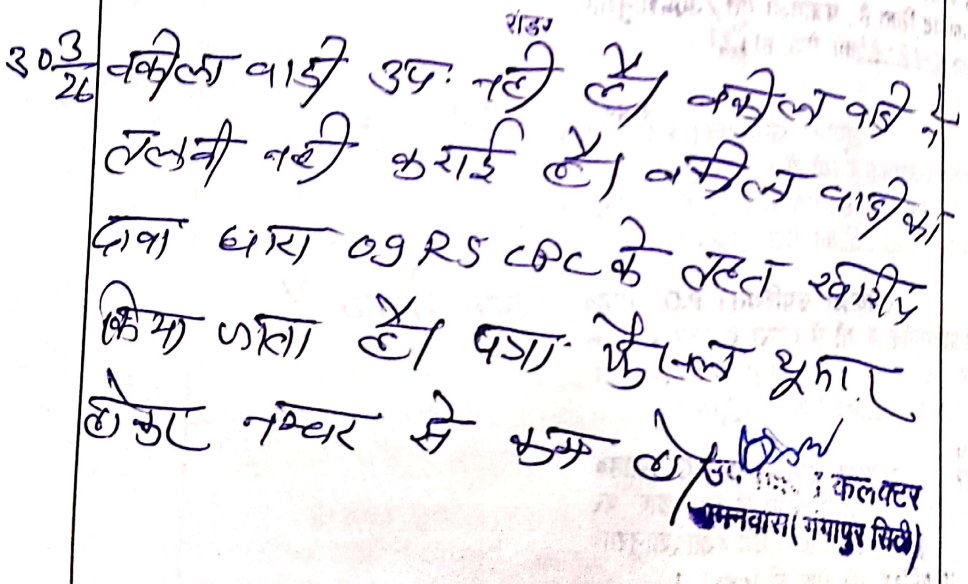 303/26 वकील वादी उप. नही है। वकील वादी ने
तलबी नही कराई है। वकील वादी का
दावा धारा 09 R5 CPC के तहत खारीज
किया जाता है। पत्रा. फैसल शुमार
होकर नम्बर से कम हो।
कलक्टर
बामनवास (गंगापुर सिटी)